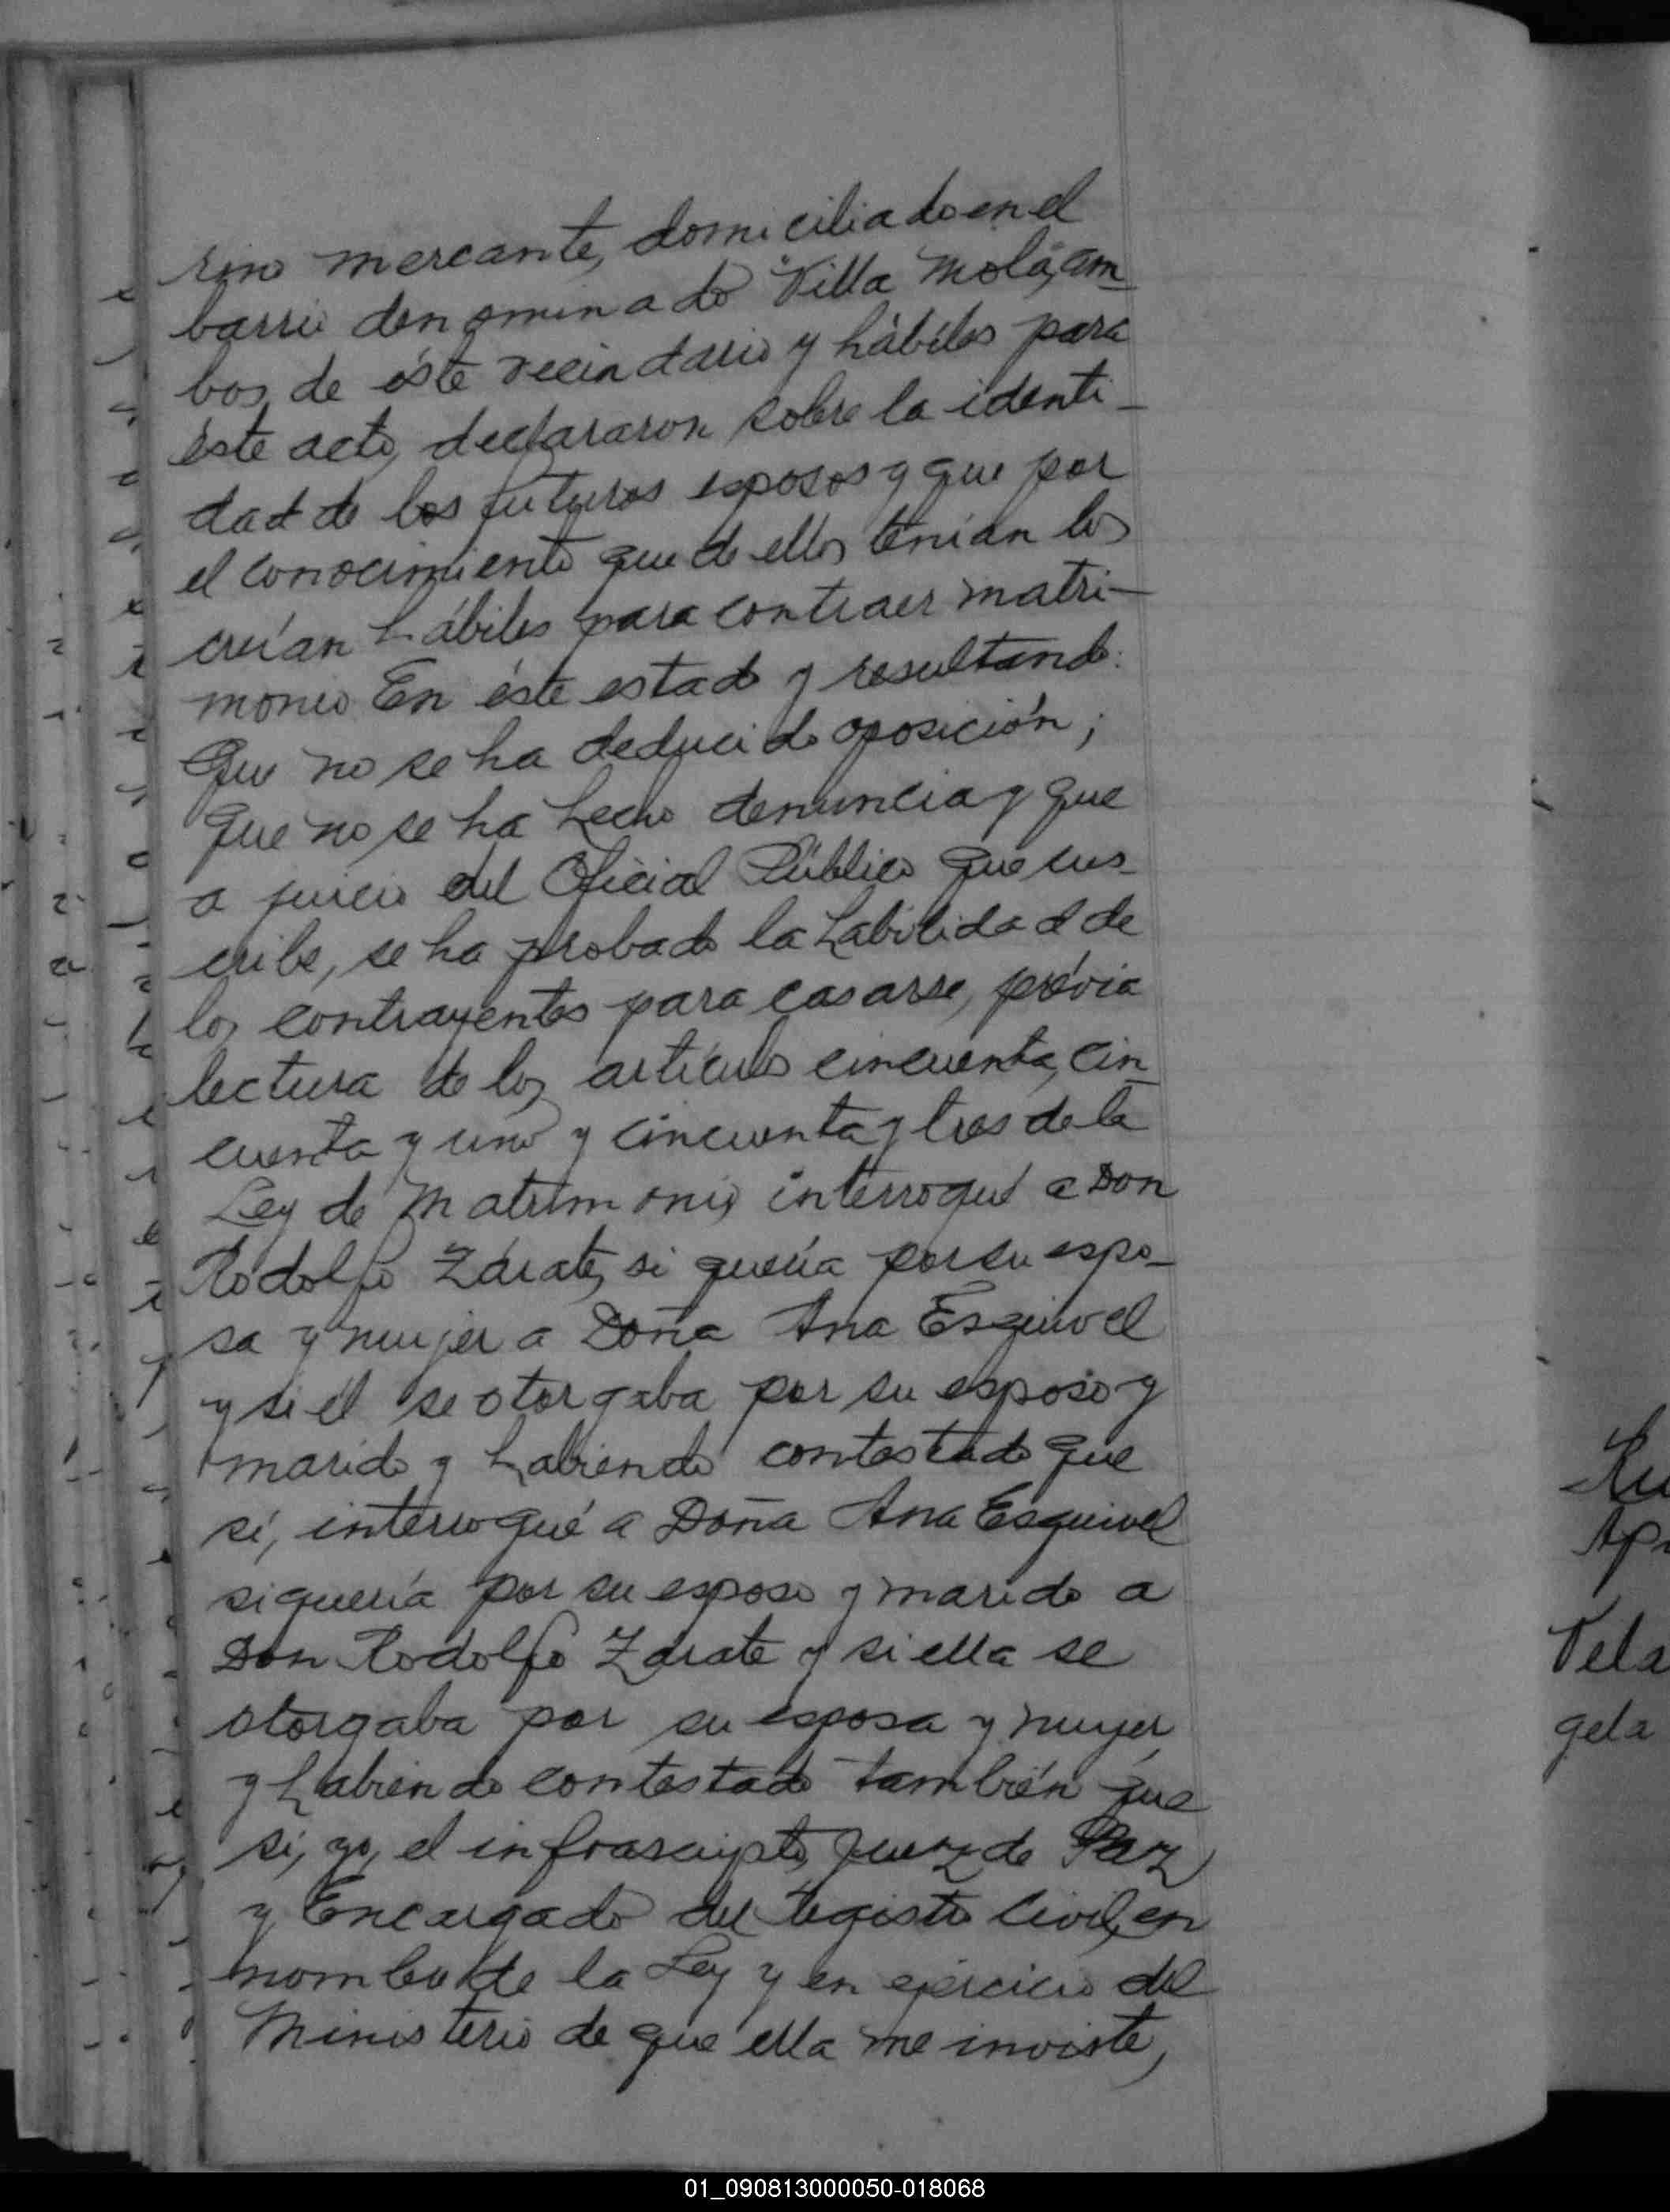 rino mercante, domiciliado en el
barrio denominado "Villa Molá", am-
bos de éste vecindario y hábiles para
éste acto, declararon sobre la identi-
dad de los futuros esposos y que por
el conocimiento que de ellos tenían los
creían hábiles para contraer matri-
monio En éste estado y resultando:
Que no se ha deducido oposición;
que no se ha hecho denuncia y que
a juicio del Oficial Público que sus-
cribe, se ha probado la habilidad de
los contrayentes para casarse, prévia
lectura de los artículos cincuenta, cin-
cuenta y uno y cincuenta y tres de la
Ley de Matrimonio, interrogué a Don
Rodolfo Zárate, si quería por su espo-
sa y mujer a Doña Ana Esquivel
y si él se otorgaba por su esposo y
marido y habiendo contestado que
sí, interrogué a Doña Ana Esquivel
si quería por su esposo y marido a
Don Rodolfo Zárate y si ella se
otorgaba por su esposa y mujer,
y habiendo contestado también que
si, yo, el infrascripto, Juez de Paz
y Encargado del Registro Civil, en
nombre de la Ley y en ejercicio del
Ministerio de que ella me inviste,
Vela
gela
01_090813000050-018068